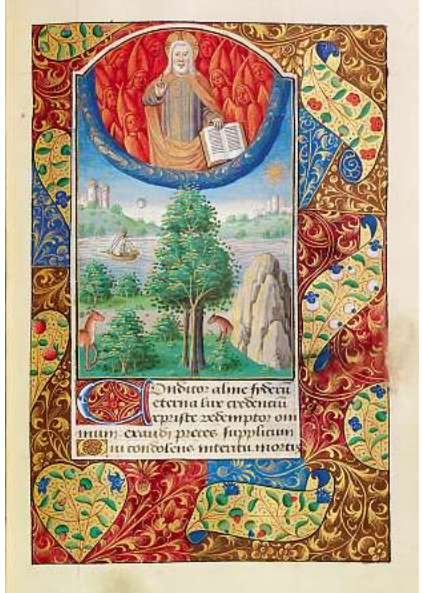 COnditor alme syderū
eterna lux credenciū
xpriste redemptor om
nium. exaudi preces supplicum
Qui condolens interitu mortis